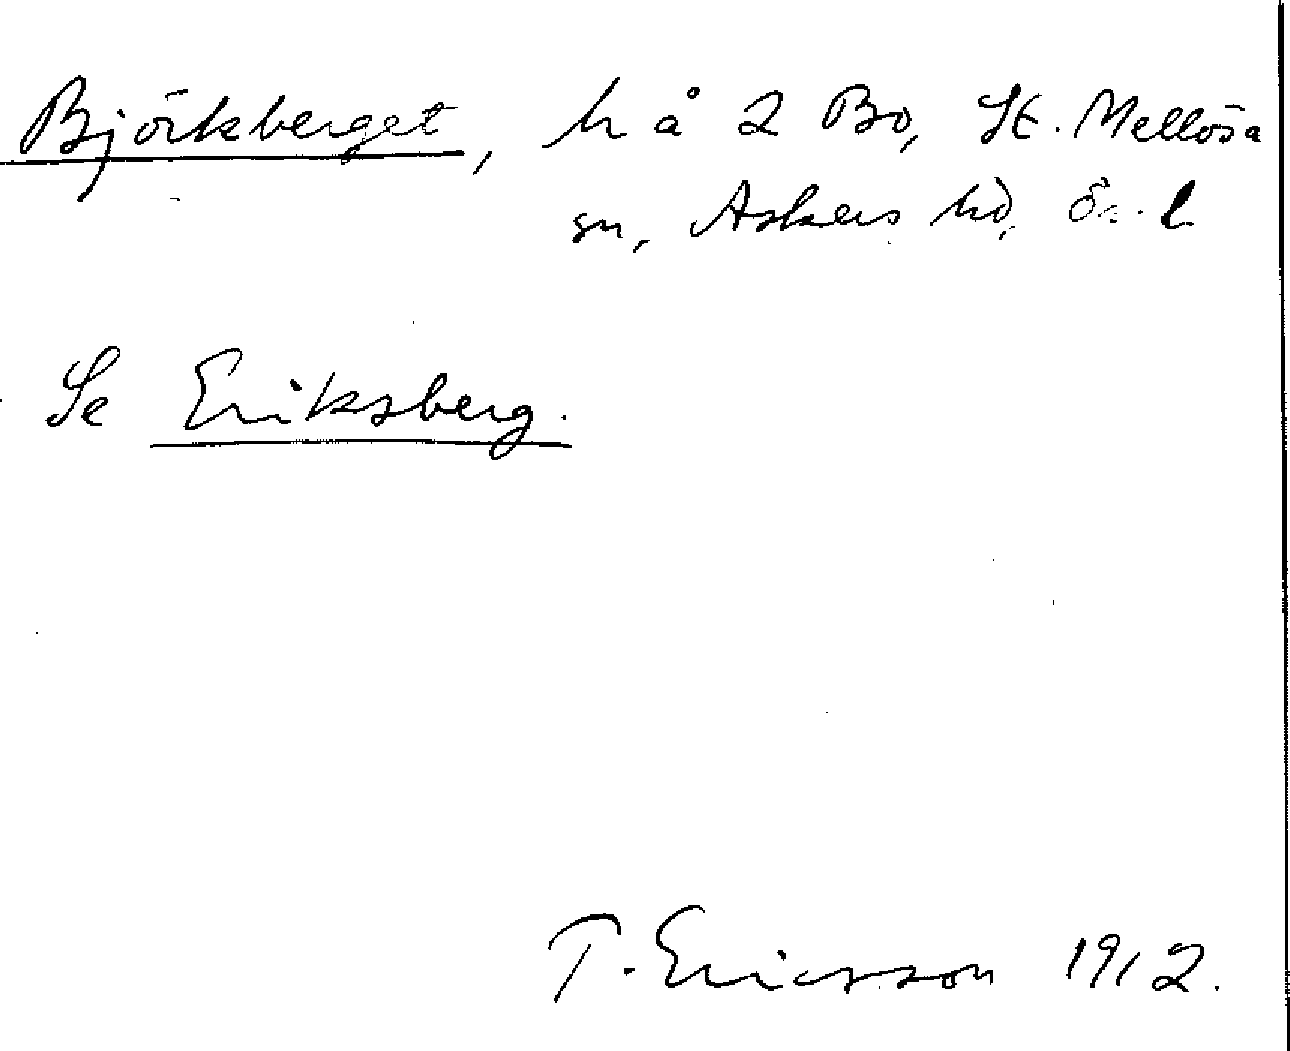 Björkberget, h å 2 Bo, St. Mellösa
sn, Askers hd, Ör. l
Se Eriksberg.
T. Ericsson 1912.